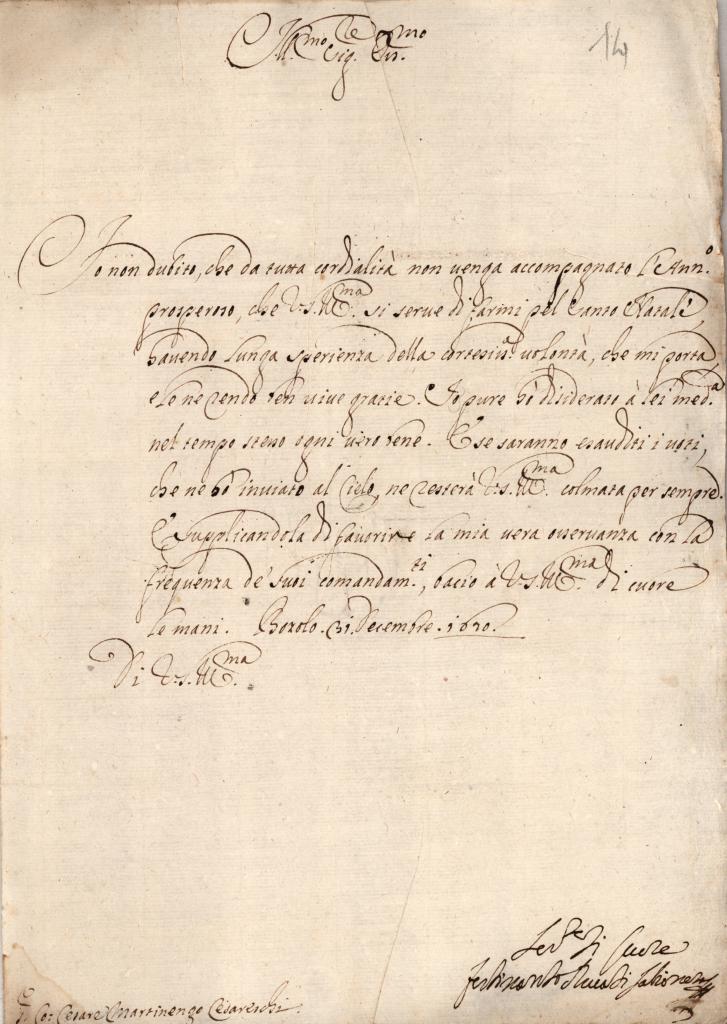 Ill.mo Sig.re Oss.mo
14
Io non dubito, che da tutta cordialità non venga accompagnato l'Ann.o
prospero, che V.S. Ill.ma si serve di farmi pel Santo Natale,
havendo lunga sperienza della cortesiss.a volontà, che mi porta,
e le ne rendo ben vive gratie. Io pure hò disiderato à lei med.a
nel tempo stesso ogni vero bene. E se saranno esauditi i voti,
che ne hò inviato al Cielo, ne resterà V.S. Ill.ma colmata per sempre.
E supplicandola di favorire la mia vera osservanza con la
frequenza de' suoi comandam.ti, bacio à V.S. Ill.ma di cuore
le mani. Bozolo. 31. Decembre. 1630.
Di V.S. Ill.ma
Ser.re di cuore
Co: Cesare Martinengo Cesareschi